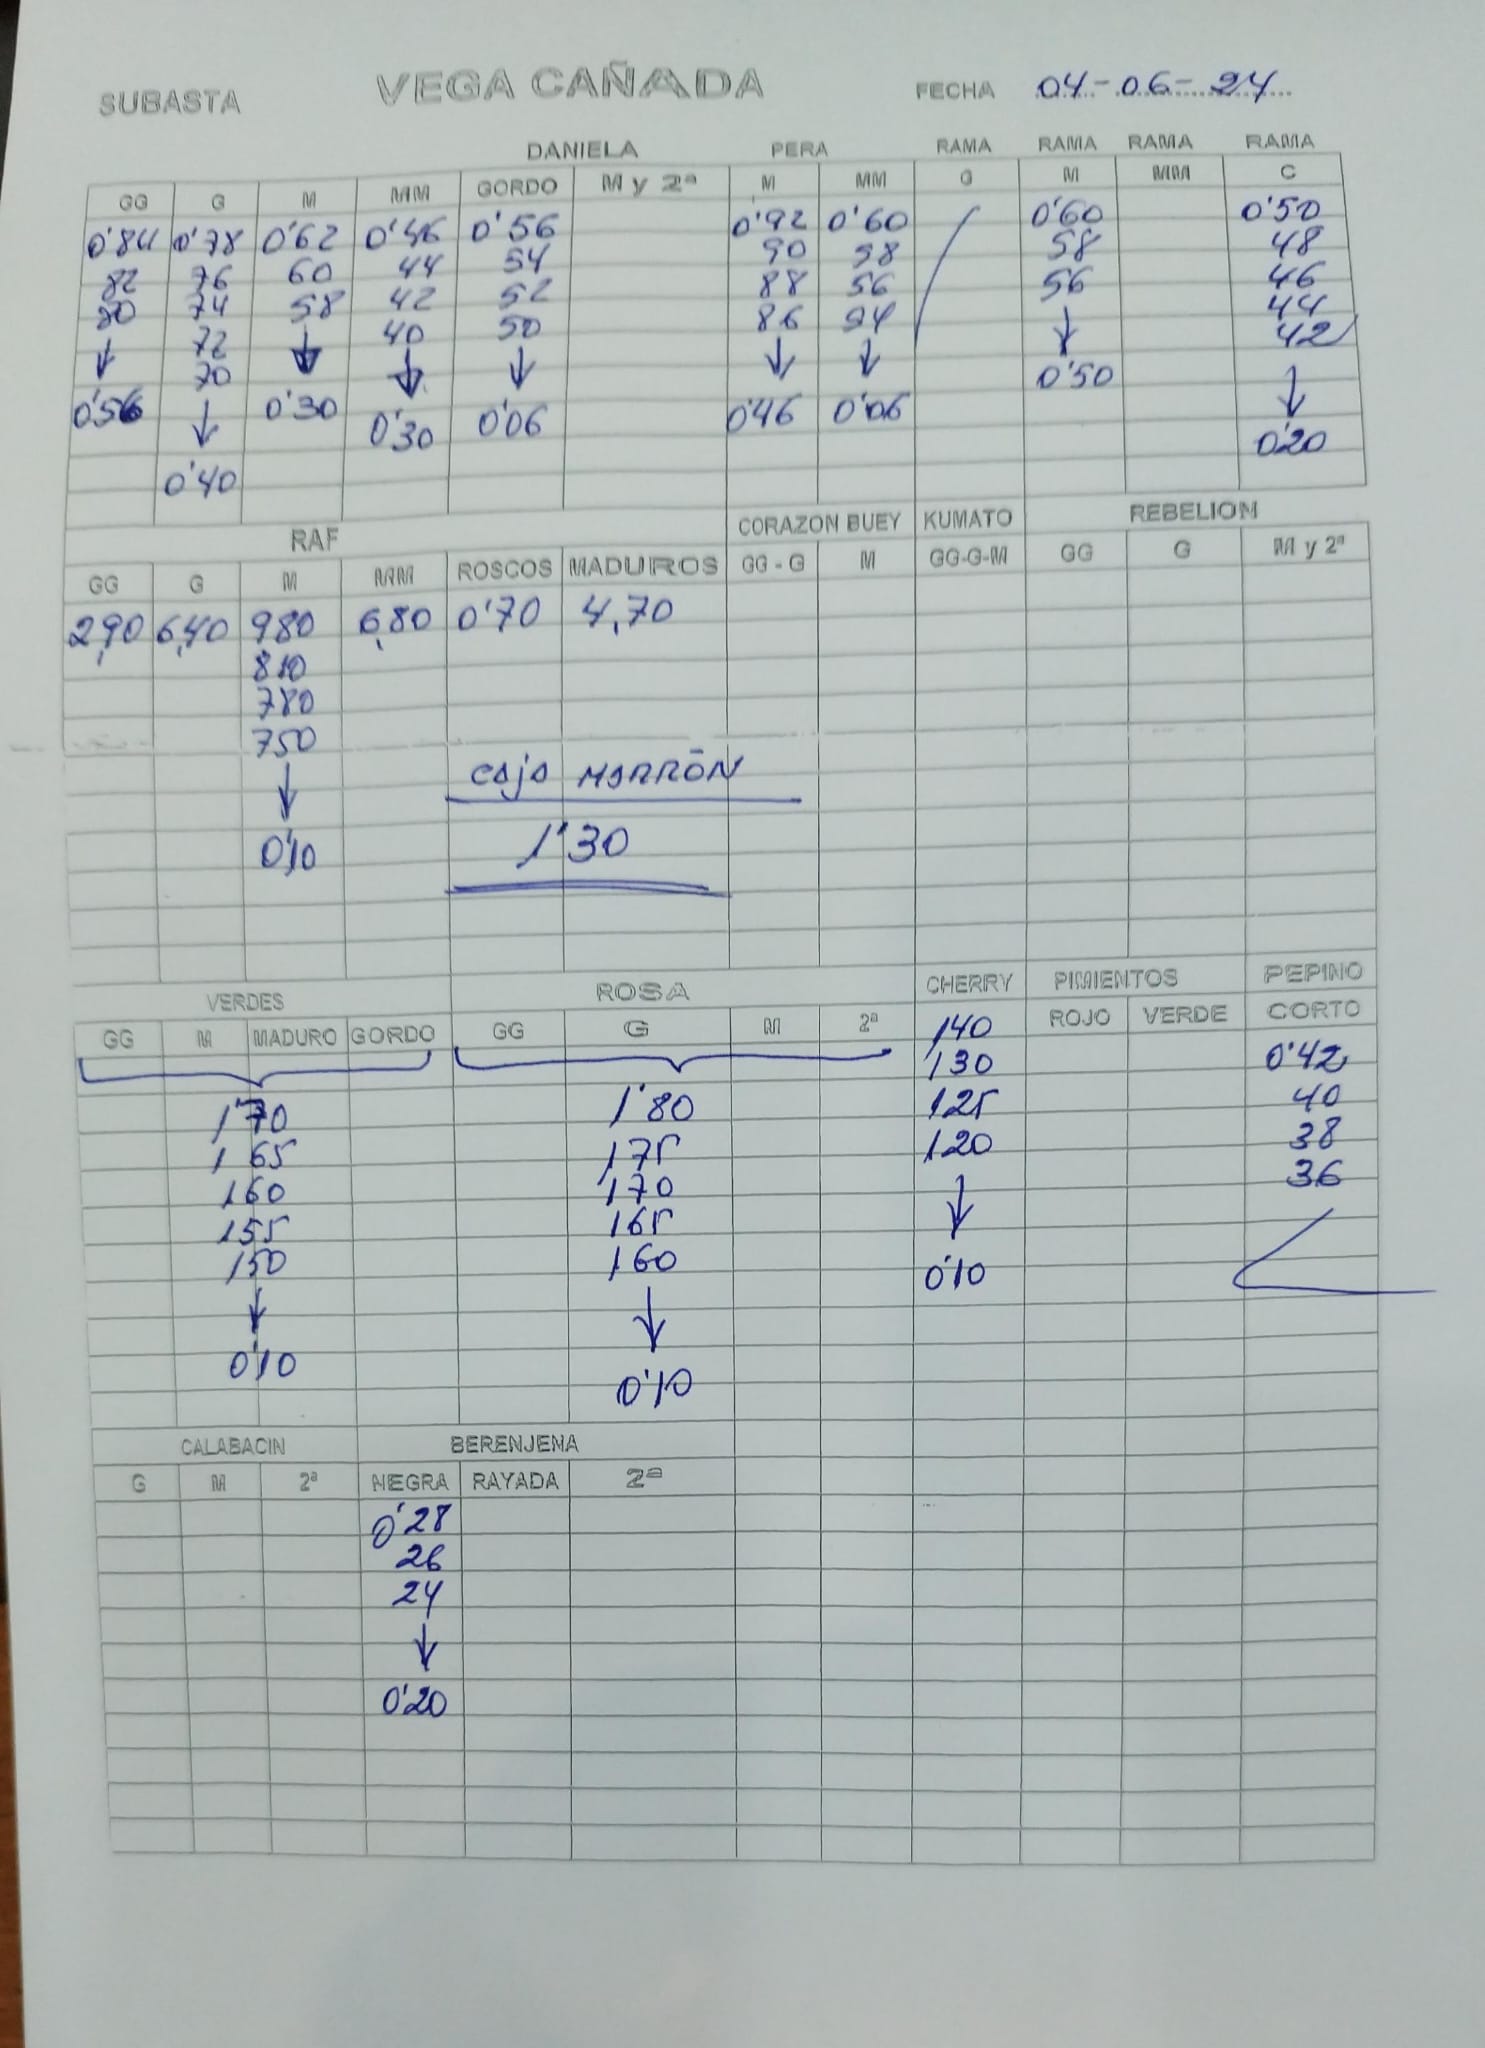 SUBASTA VEGA CAÑADA FECHA 04-06-24
DANIELA PERA RAMA RAMA RAMA RAMA
GG G M MM GORDO M y 2ª M MM G M MM C
0'84 0'78 0'62 0'46 0'56 0'92 0'60 0'60 0'50
82 76 60 44 54 90 58 58 48
80 74 58 42 52 88 56 56 46
72 40 50 86 54 44
70 42
0'56 0'30 0'30 0'06 0'46 0'06 0'50 0'20
0'40
RAF CORAZON BUEY KUMATO REBELION
GG G M MM ROSCOS MADUROS GG - G M GG-G-M GG G M y 2ª
2,90 6,40 980 6,80 0'70 4,70
810
780
750
caja MARRÓN
0'10 1'30
VERDES ROSA CHERRY PIMIENTOS PEPINO
GG M MADURO GORDO GG G M 2ª 140 ROJO VERDE CORTO
130 0'42
1'70 1'80 125 40
1 65 175 120 38
160 170 36
155 165
150 160 0'10
0'10 0'10
CALABACIN BERENJENA
G M 2ª NEGRA RAYADA 2ª
0'28
26
24
0'20